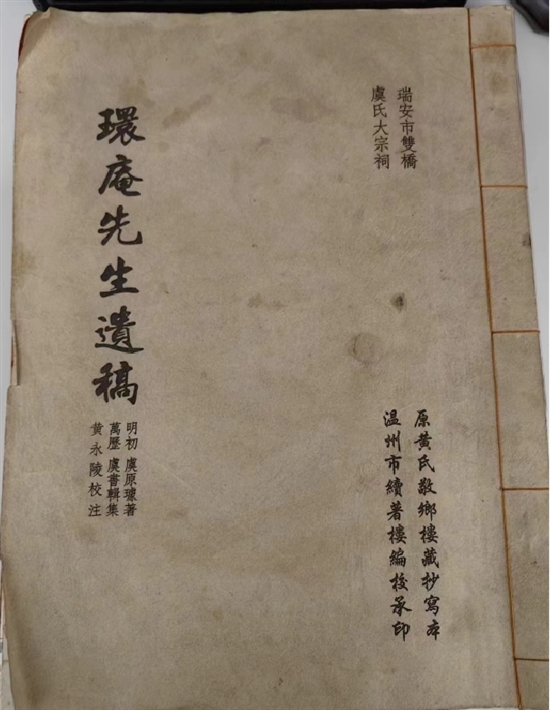 瑞安市雙橋
虞氏大宗祠
原黃氏敬鄉樓藏抄寫本
温州市續著樓編校承印
環庵先生遺稿
明初 虞原璩著
萬歷 虞書輯集
黄永陵校注